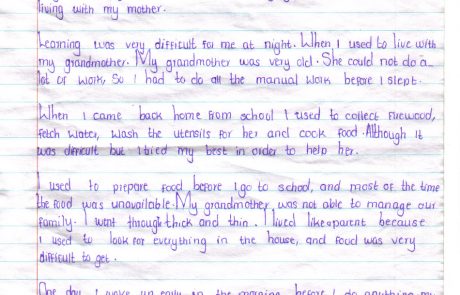 living with my mother.
Learning was very difficult for me at night. When I used to live with
my grandmother. My grandmother was very old. She could not do a
lot of work, so I had to do all the manual work before I slept.
When I came back home from school I used to collect firewood,
fetch water, wash the utensils for her and cook food. Although it
was difficult but I tried my best in order to help her.
I used to prepare food before I go to school, and most of the time
the food was unavailable. My grandmother, was not able to manage our
family. I went through thick and thin. I lived like a parent because
I used to look for everything in the house, and food was very
difficult to get.
One day I woke up early in the morning before I do anything my